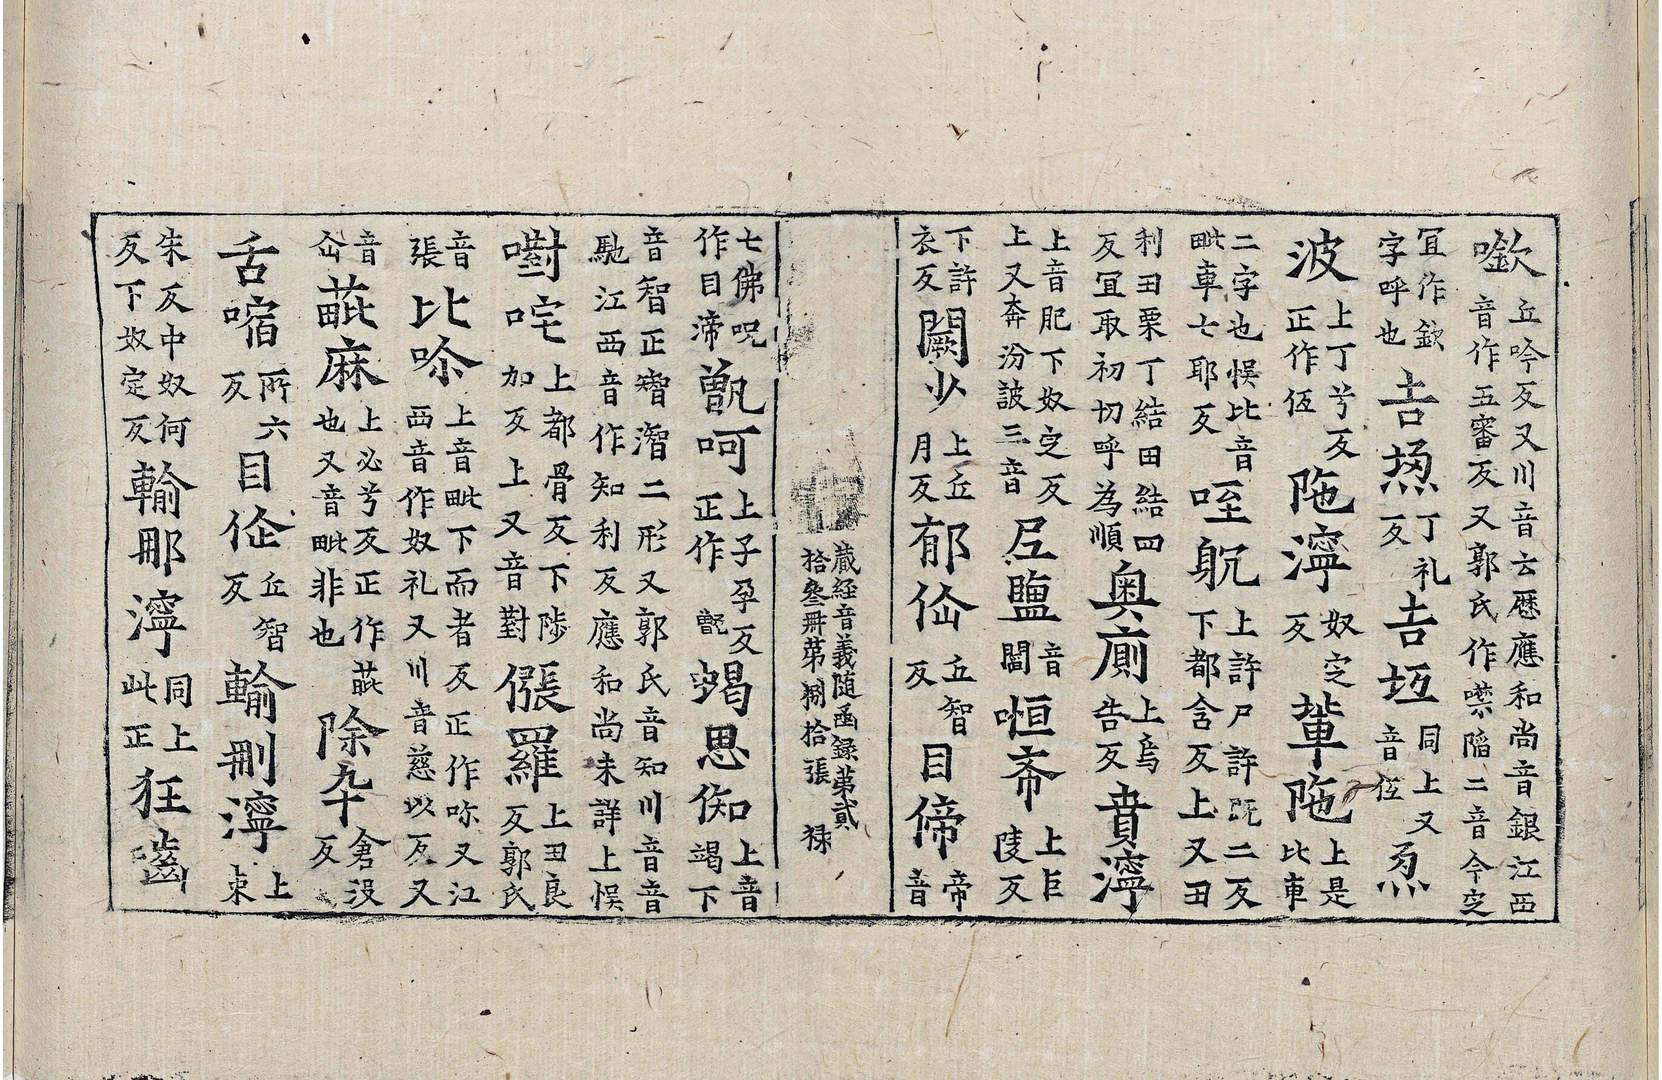 㘅丘吟反又川音云厯應和尚音銀江西音作五審反又郭氏作噤䧟二音今㝎
冝作欽字呼也𡉴㘶丁礼反𡉴㘺同上又音伍㓙
波上丁兮反正作𠇖陁濘奴㝎反䡘陁上是比車
二字也悞比音毗車七耶反咥䏔上許尸許旣二反下都含反上又田
利田栗丁結田結四反冝取初切呼為順奥廁上烏告反賁濘
上音肥下奴㝎反上又奔汾詖三音𡰱䀋音閻㖶斋上巨陵反
下許衣反闕少上丘月反郁㑶丘智反目偙帝音
藏経音義随函録苐貳拾叄冊苐捌拾張 禄
七佛呪作目渧甑呵上子孕反正作甑竭思㑄上音竭下
音智正𥏾潪二形又郭氏音知川音音馳江西音作知利反應和尚未詳上悞
嚉咤上都骨反下陟加反上又音對㣄羅上丑良反郭氏
音張比㖇上音毗下而者反正作㖇又江西音作奴礼又川音慈以反又
音㑶蓏麻上必兮反正作蓖也又音毗非也除卒倉没反
舌㗛所六反目㑶丘智反輸刪濘上束
朱反中奴何反下奴定反輸那濘同上此正狂齒